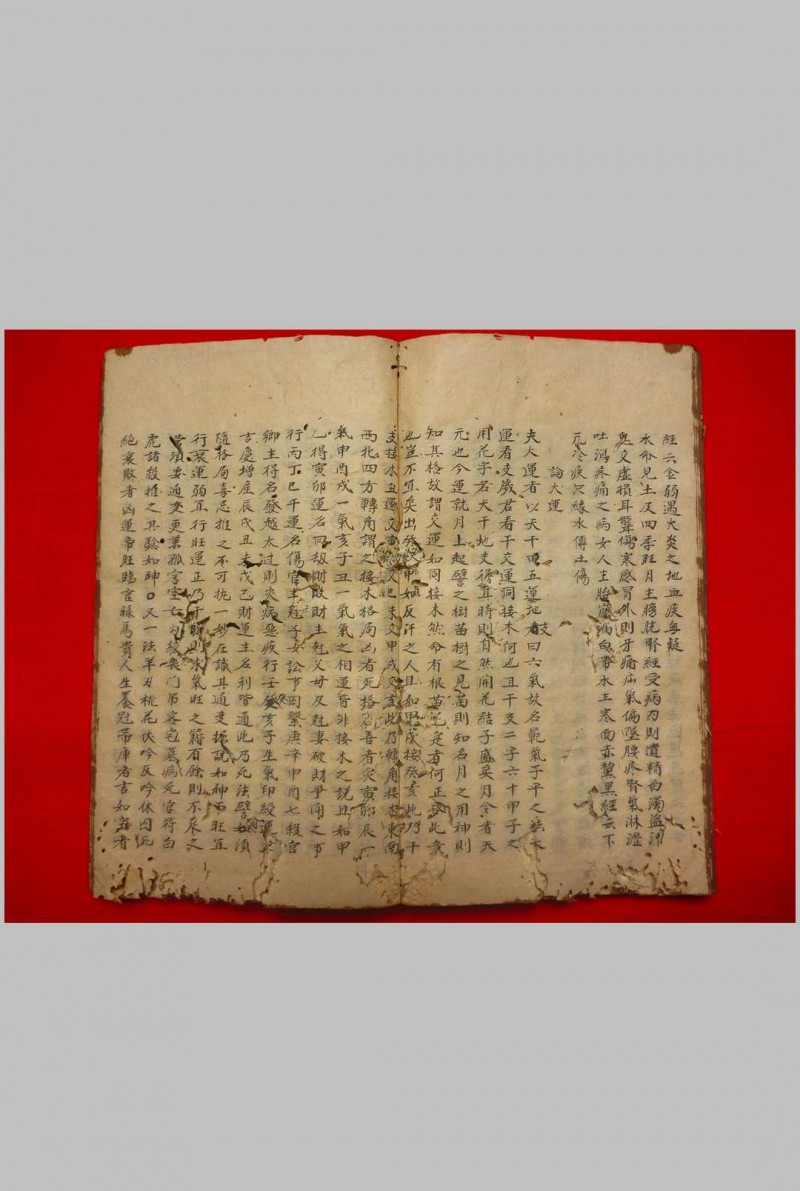 經云金弱遇火炎之地血疾無疑
水命見土及四季旺月主膀胱腎經受病乃則遺精白濁盜汗
鬼交虛損耳聾傷寒感冒外則牙痛疝氣偏墜腰疼腎氣淋瀝
吐瀉疼痛之病女人主胎崩漏白帶水主寒面赤黧黑經云下
元冷疾只緣水傳土傷
論大運
夫大運者以天干曰五運地支曰六氣故名範氣子平之法大
運看支歲君看干交運同接木何也且干支二字六十甲子之
用花字若天干地支得其時則自然開花結子盛矣月令者天
元也今運就月上起譬之樹苗樹之見苗則知名月之用神則
知其格故謂交運如同接木然命有根苗花定者何正合此意
也豈不宜矣出癸入甲如反汗之人且如甲戌接癸亥此乃干
支接木丑運交寅辰交巳未交申戌交亥此乃轉角接木東南
西北四方轉角謂之接木格局凶者死格局吾者灾寅卯辰一
氣申酉戌一氣亥子丑一氣氣之相連皆非接木之說且如甲
乙得寅卯運名曰劫財敗財主尅父母及尅妻破財爭鬧之事
行丙丁巳午運名傷官主尅子女訟事囚繫庚辛申酉七殺官
鄉主得名發越太过則灾病惡疾行壬癸亥子生氣印綬運
吉慶增産辰戌丑未戊己財運主名利皆通此乃死法譬如須
隨格局喜忌推之不可执一妙在識其通变拙說如神
行衰運弱宜行旺運正乃干弱則求氣旺之籍有餘則不
須要通变更兼孤宮室亡勾發喪門吊客宅墓病死官符白
虎諸殺推之其驗如神又一法羊刃桃花伏吟反吟休囚
絶衰敗者凶運帝旺臨官祿馬貴人生養冠帶庫者吉如